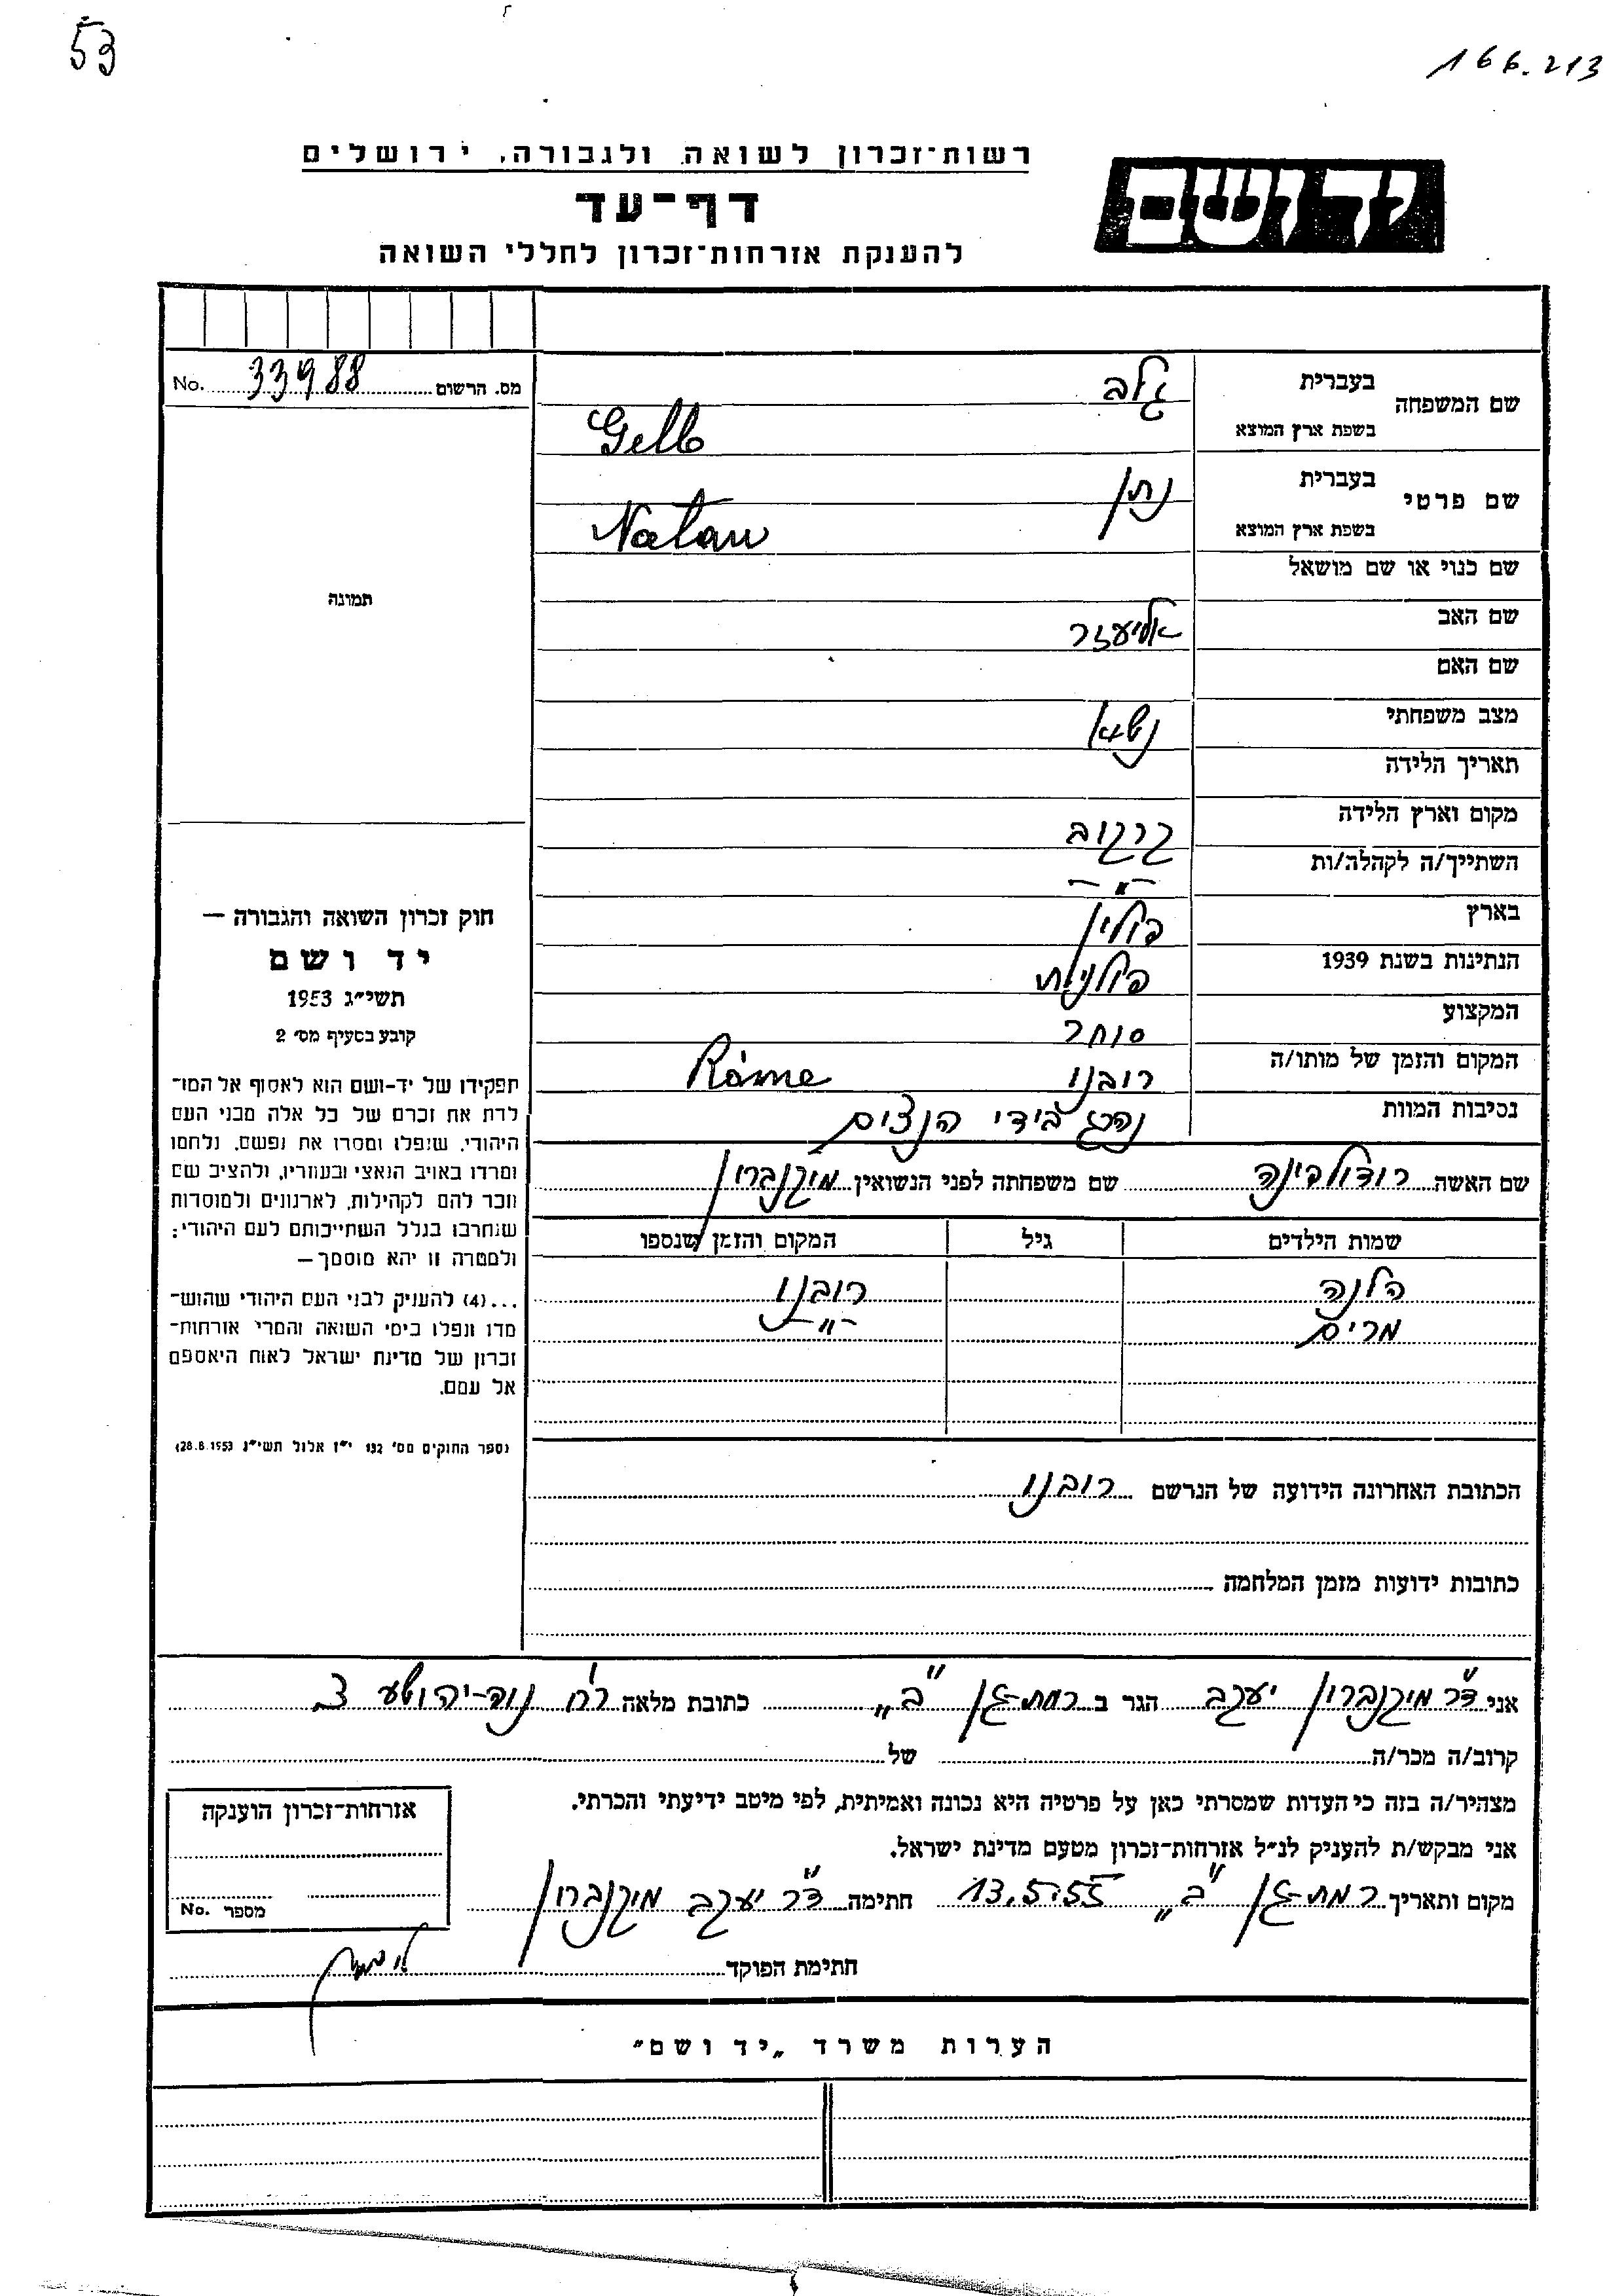 53
166.213
רשות־זכרון לשואה ולגבורה, ירושלים
יד ושם
דף־עד
להענקת אזרחות־זכרון לחללי השואה
מס. הרשום 33988 No.
שם המשפחה
בעברית גלב
בשפת ארץ המוצא Gelb
שם פרטי
בעברית נתן
בשפת ארץ המוצא Natan
שם כנוי או שם מושאל
שם האב אליעזר
שם האם
מצב משפחתי נשא
תאריך הלידה
מקום וארץ הלידה קרקוב
השתייך/ה לקהלה/ות -"-
בארץ פולין
הנתינות בשנת 1939 פולנית
המקצוע סוחר
המקום והזמן של מותו/ה רובנו Równe
נסיבות המוות נהרג בידי הנצים
שם האשה רודולפינה שם משפחתה לפני הנשואין מיקנברון
שמות הילדים גיל המקום והזמן שנספו
הלנה רובנו
מרים -"-
הכתובת האחרונה הידועה של הנרשם רובנו
כתובות ידועות מזמן המלחמה
תמונה
חוק זכרון השואה והגבורה —
יד ושם
תשי״ג 1953
קובע בסעיף מס׳ 2
תפקידו של יד-ושם הוא לאסוף אל המו־
לדת את זכרם של כל אלה מבני העם
היהודי, שנפלו ומסרו את נפשם, נלחמו
ומרדו באויב הנאצי ובעוזריו, ולהציב שם
וזכר להם לקהילות, לארגונים ולמוסדות
שנחרבו בגלל השתייכותם לעם היהודי;
ולמטרה זו יהא מוסמך —
...(4) להעניק לבני העם היהודי שהוש־
מדו ונפלו בימי השואה והמרי אזרחות־
זכרון של מדינת ישראל לאות היאספם
אל עמם.
(ספר החוקים מס׳ 132 י״ז אלול תשי״ג 28.8.1953)
אני ד״ר מיקנברון יעקב הגר ב רמת-גן „ב״ כתובת מלאה רח׳ נוה-יהושע
קרוב/ה מכר/ה של
מצהיר/ה בזה כי העדות שמסרתי כאן על פרטיה היא נכונה ואמיתית, לפי מיטב ידיעתי והכרתי.
אני מבקש/ת להעניק לנ״ל אזרחות־זכרון מטעם מדינת ישראל.
מקום ותאריך רמת-גן „ב״ 13.5.55 חתימה ד״ר יעקב מיקנברון
חתימת הפוקד
אזרחות־זכרון הוענקה
מספר No.
הערות משרד „יד ושם״